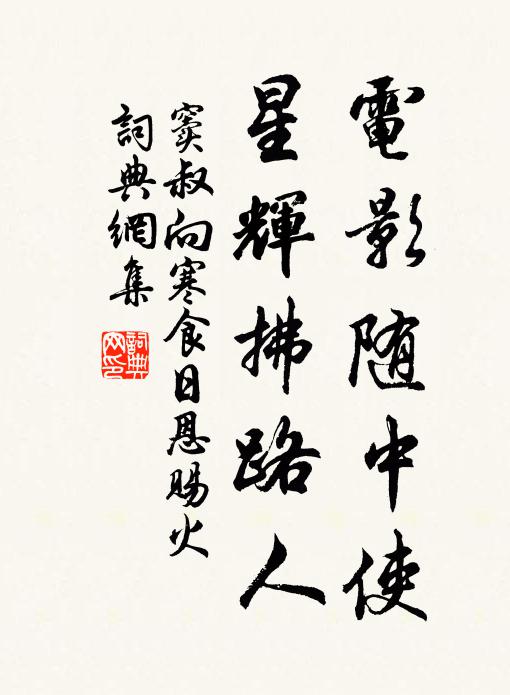 電影随中使
星輝拂路人
竇叔向寒食日恩賜火
詞典網集
詞典
网印